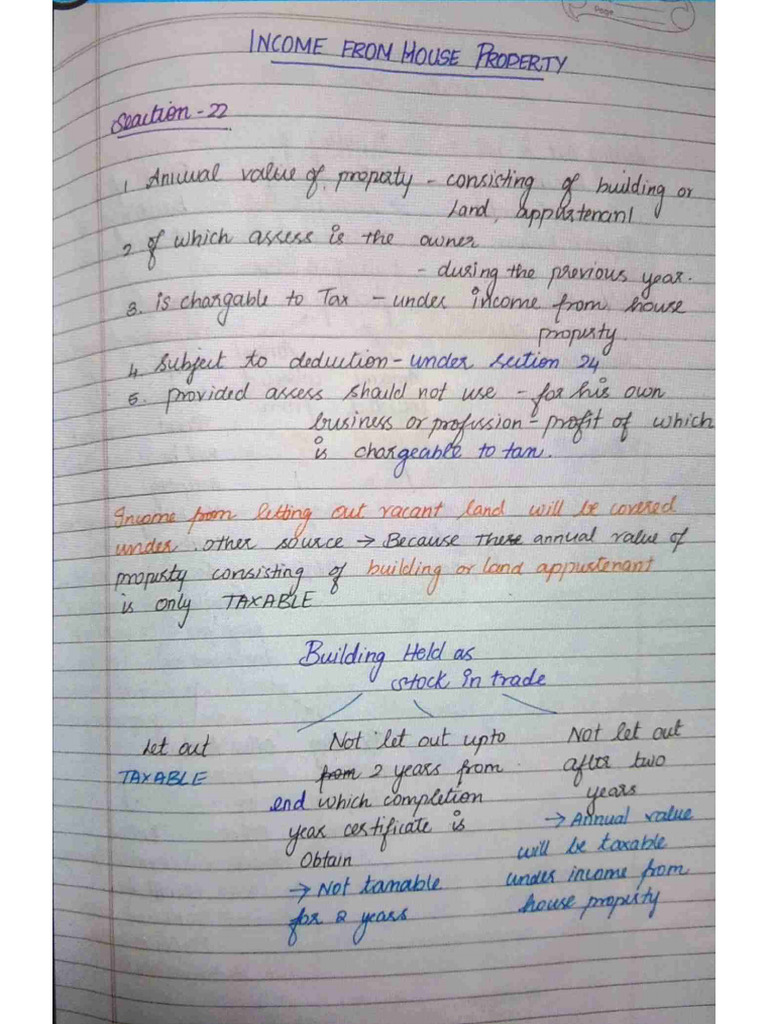 INCOME FROM HOUSE PROPERTY
Seaction - 22
1. Annual value of property - consisting of building or
land, appustenant
2 of which assess is the owner
- during the previous year.
3. is chargable to Tax - under income from house
property.
4. Subject to deduction - under section 24
5. provided assess should not use - for his own
business or profussion - profit of which
is chargeable to tan.
Income from letting out vacant land will be covered
under other source → Because these annual value of
property consisting of building or land appustenant
is only TAXABLE
Building Held as
stock in trade
Let out
TAXABLE
Not let out upto
from 2 years from
end which completion
year certificate is
Obtain
→ Not tanable
for 2 years
Not let out
after two
years
→ Annual value
will be taxable
under income from
house property